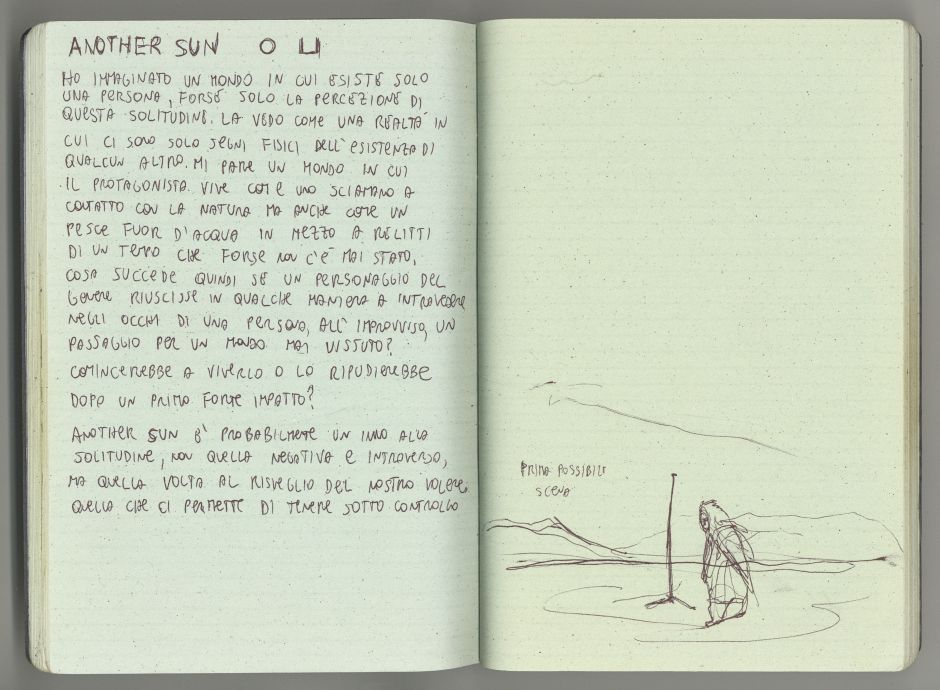 ANOTHER SUN O U
HO IMMAGINATO UN MONDO IN CUI ESISTE SOLO
UNA PERSONA, FORSE SOLO LA PERCEZIONE DI
QUESTA SOLITUDINE. LA VEDO COME UNA REALTÀ IN
CUI CI SONO SOLO SEGNI FISICI DELL'ESISTENZA DI
QUALCUN ALTRO. MI PARE UN MONDO IN CUI
IL PROTAGONISTA VIVE COME UNO SCIAMANO A
CONTATTO CON LA NATURA MA ANCHE COME UN
PESCE FUOR D'ACQUA IN MEZZO A RELITTI
DI UN TEMPO CHE FORSE NON C'È MAI STATO.
COSA SUCCEDE QUINDI SE UN PERSONAGGIO DEL
GENERE RIUSCISSE IN QUALCHE MANIERA A INTRAVEDERE
NEGLI OCCHI DI UNA PERSONA, ALL'IMPROVVISO, UN
PASSAGGIO PER UN MONDO MAI VISSUTO?
COMINCEREBBE A VIVERLO O LO RIPUDIEREBBE
DOPO UN PRIMO FORTE IMPATTO?
ANOTHER SUN È PROBABILMETE UN INNO ALLA
SOLITUDINE, NON QUELLA NEGATIVA E INTROVERSA,
MA QUELLA VOLTA AL RISVEGLIO DEL NOSTRO VOLERE,
QUELLA CHE CI PERMETTE DI TENERE SOTTO CONTROLLO
PRIMA POSSIBILE
SCENA